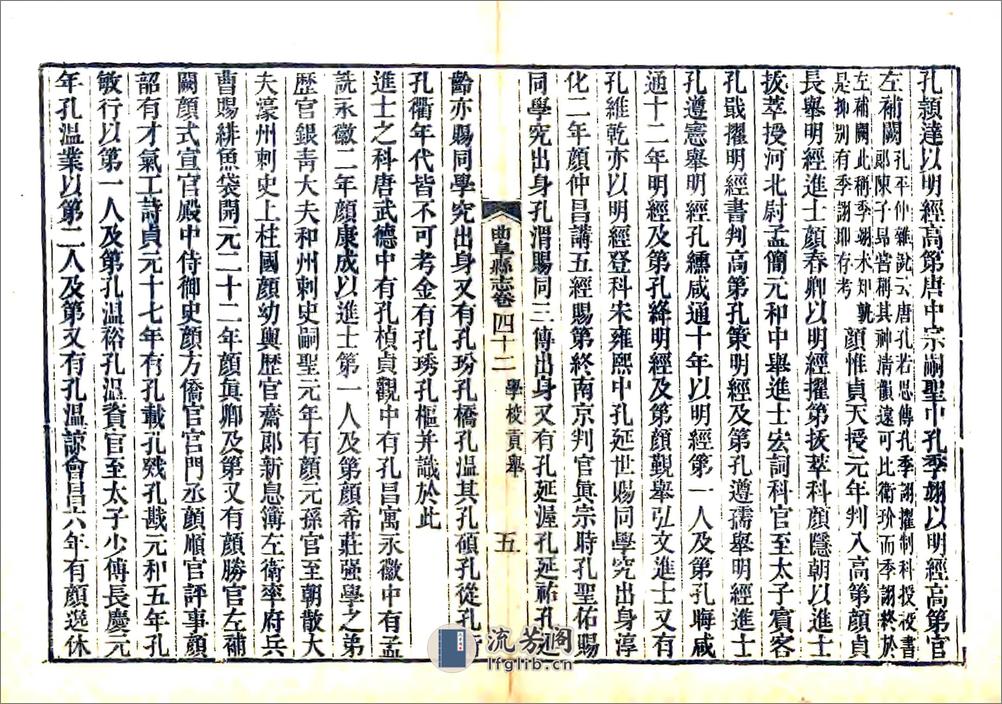 孔頴達以明經高第唐中宗嗣聖中孔季翊以明經高第官
左補闕孔平仲雜說云唐孔若思傳孔季詡擢制科授校書
郎陳子昻嘗稱其神清韻遠可比衛玠而季詡終於
左補闕此稱季翊未知孰
是抑別有季詡耶存考
顏惟貞天授元年判入高第顏貞
長舉明經進士顏春卿以明經擢第拔萃科顏隱朝以進士
拔萃授河北尉孟簡元和中舉進士宏詞科官至太子賓客
孔戢擢明經書判高第孔策明經及第孔遵孺舉明經進士
孔遵憲舉明經孔纁咸通十年以明經第一人及第孔晦咸
通十二年明經及第孔絳明經及第顏覿舉弘文進士又有
孔維乾亦以明經登科宋雍熙中孔延世賜同學究出身淳
化二年顏仲昌講五經賜第終南京判官眞宗時孔聖佑賜
同學究出身孔渭賜同三傳出身又有孔延渥孔延祐孔延
曲阜縣志卷四十二
學校貢舉
五
齡亦賜同學究出身又有孔玢孔橋孔溫其孔碩孔從孔
孔衢年代皆不可考金有孔琇孔樞并識於此
進士之科唐武德中有孔楨貞觀中有孔昌寓永徽中有孟
詵永徽二年顏康成以進士第一人及第顏希莊強學之弟
歷官銀靑大夫和州刺史嗣聖元年有顏元孫官至朝散大
夫濠州刺史上柱國顏幼輿歷官齋郞新息簿左衛率府兵
曹賜緋魚袋開元二十二年顏眞卿及第又有顏勝官左補
闕顏式宣官殿中侍御史顏方僑官宮門丞顏順官評事顏
韶有才氣工詩貞元十七年有孔載孔戣孔戡元和五年孔
敏行以第一人及第孔溫裕孔溫資官至太子少傅長慶元
年孔溫業以第二人及第又有孔溫諒會昌六年有顏選休
流芳阁
lfglib.cn